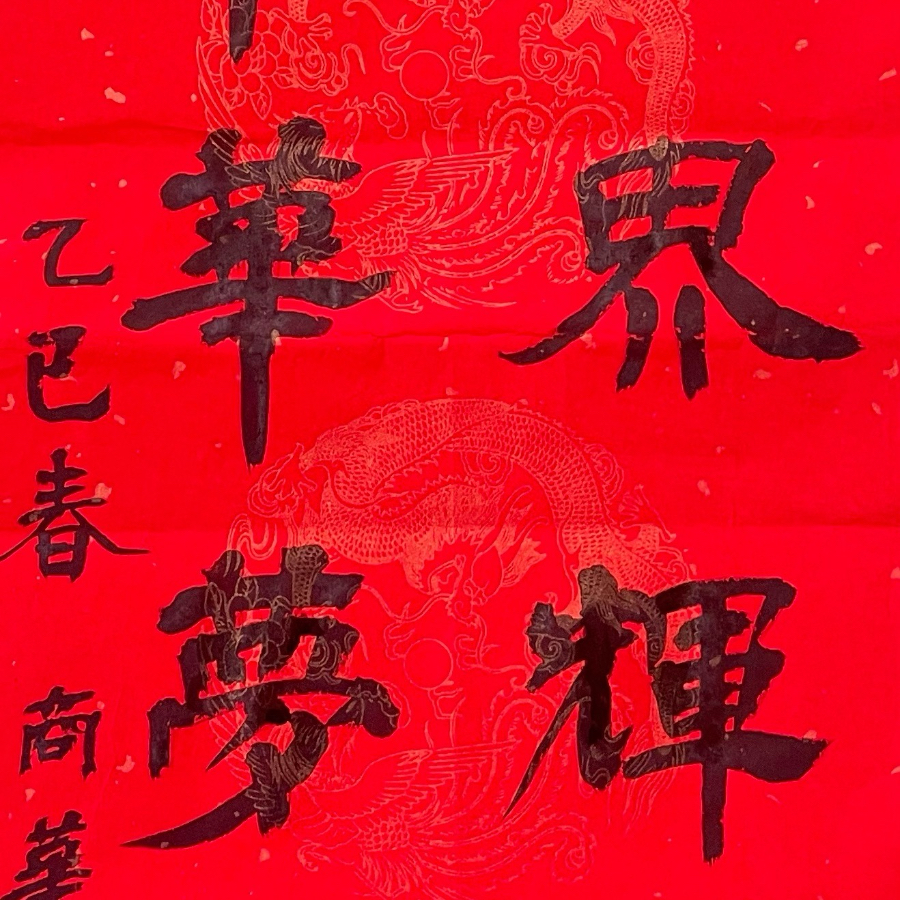 界輝
華夢
乙巳春 商華